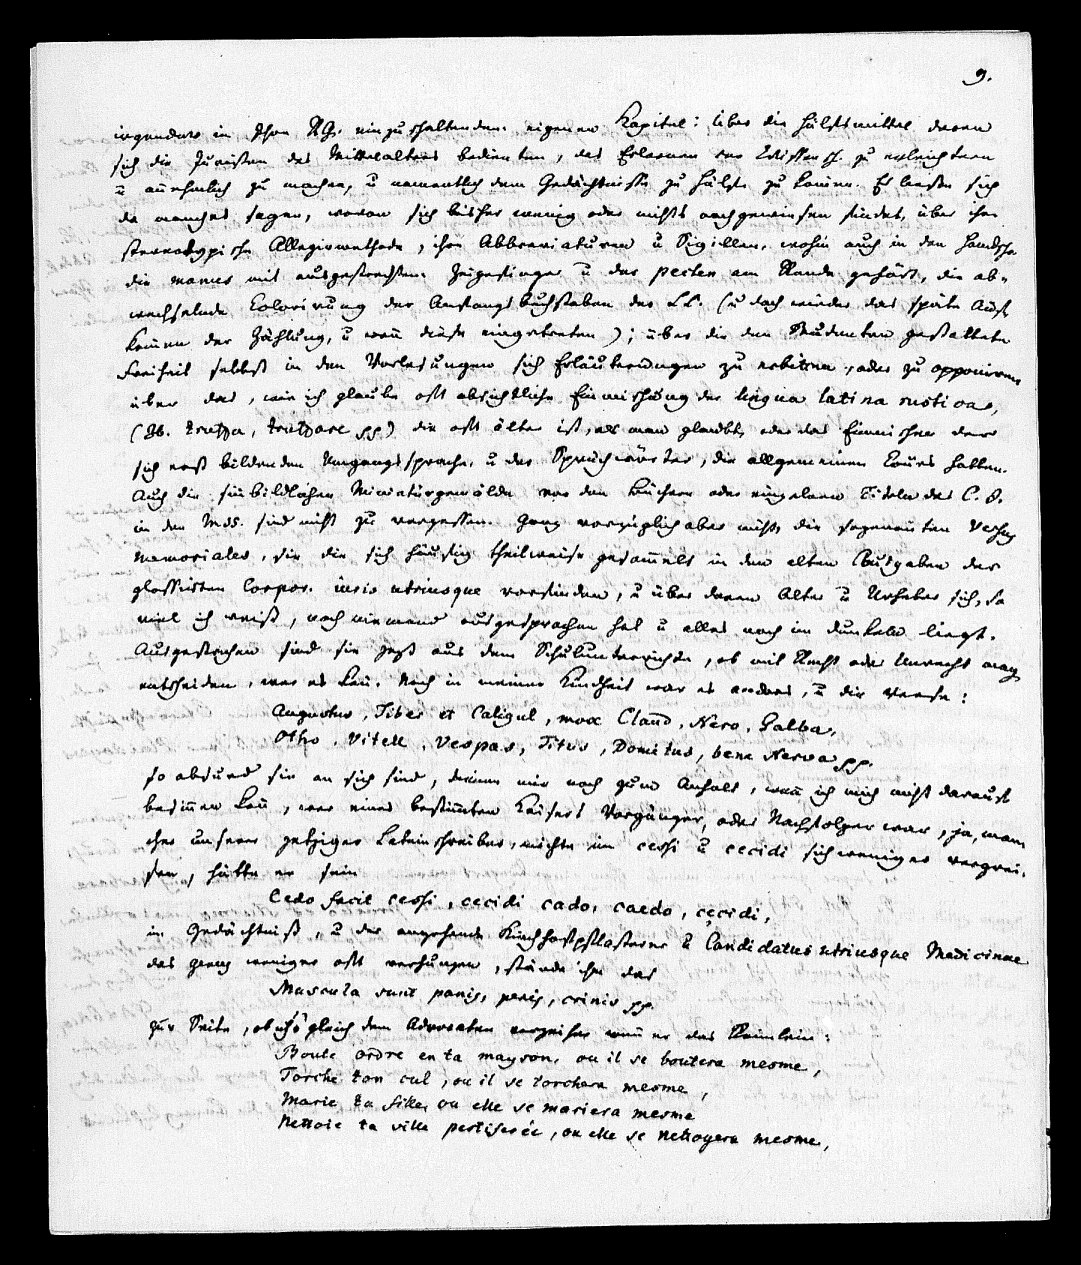 9.
irgendwo in Ihrer RG. einzuschaltenden eigenen Kapitel: über die Hülfsmittel deren
sich die Juristen des Mittelalters bedienten, das Erlernen der Wissensch. zu erleichtern
u annehmlich zu machen, u namentlich dem Gedächtniße zu Hülfe zu kommen. Es ließe sich
da manches sagen, wovon sich bisher wenig oder nichts nachgewiesen findet, über ihre
stereotypische Allegirmethode, ihre Abbreviaturen u Sigillen, wohin auch in den Handschr.
die manus mit ausgestrecktem Zeigefinger u das pecten am Rande gehört, die ab-
wechselnde Colorirung der Anfangsbuchstaben der LL. (u doch wieder das späte Auf
kommen der Zählung, u wann diese eingetreten); über die den Studenten gestattete
Freiheit selbst in den Vorlesungen sich Erläuterungen zu erbitten, oder zu opponiren
über das, wie ich glaube oft absichtliche Einmischung der lingua latina rustica,
(ZB. truffa, truffare pp) die oft älter ist, als man glaubt, oder das Einmischen der
sich erst bildenden Umgangssprache, u der Sprüchwörter, die allgemeinen Cours hatten.
Auch die sinbildlichen Miniaturgemälde vor den Büchern oder einzelnen Titeln des C. J.
in den Mss. sind nicht zu vergessen. Ganz vorzüglich aber nicht, die sogenannten Versus
memoriales, die die sich häufig theilweise gesammelt in den alten Ausgaben der
glossirten Corpor. iuris utriusque vorfinden, u über deren Alter u Urheber sich, so
viel ich weiß, noch niemand ausgesprochen hat u alles noch im dunkeln liegt.
Ausgestrichen sind sie jetzt aus dem Schulunterrichte, ob mit Recht oder Unrecht mag
entscheiden, wer es kan. Noch in meiner Kindheit war es anders, u die Verse:
Augustus, Tiber et Caligul, mox Claud, Nero, Galba,
Otho, Vitell, Vespas, Titus, Domitus, bene Nerva pp.
so absurd sie an sich sind, dienen mir noch zum Anhalt, wenn ich mich nicht darauf
besinnen kan, wer eines bestimten Kaisers Vorgänger, oder Nachfolger war, ja, man
cher unserer jetziger Lateinschreiber, möchte im cessi u cecidi sich weniger vergrei-
fen, hätte er sein
Cedo facit cessi, cecidi cado, caedo, cecidi,
im Gedächtniß, u der angehende Kirchhofpflasterer u Candidatus utriusque Medicinae
das genus weniger oft verhunzen, stände ihm das
Mascula sunt panis, penis, crinis pp.
zur Seite, ob ichs gleich dem Advocaten verzeihe wenn er das Reimlein:
Boute ordre en ta mayson, ou il se boutera mesme,
Torche ton cul, ou il se torchera mesme,
Marie ta fille, ou elle se mariera mesme
Nettoie ta ville pestiferée, ou elle se nettoyera mesme,